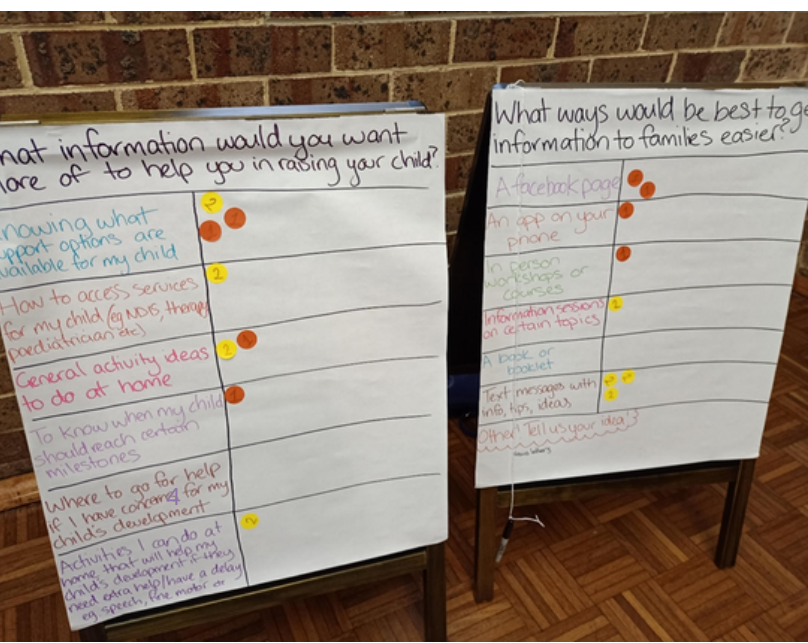 hat information would you want
ore of to help you in raising your child?
nowing what
upport options are
vailable for my child
How to access services
for my child (eg NDIS, therapy,
paediatrician etc)
General activity ideas
to do at home
To know when my child
should reach certain
milestones
Where to go for help
if I have concerns for my
child's development
Activities I can do at
home that will help my
child's development if they
need extra help/have a delay
eg speech, fine motor or
What ways would be best to ge
information to families easier?
A facebook page
An app on your
phone
In person
workshops or
courses
Information sessions
on certain topics
A book or
booklet
Text messages with
info, tips, ideas
Other! Tell us your idea!